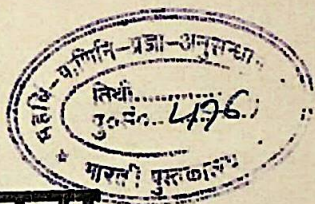 महर्षि-पाणिनि-प्रज्ञा-अनुसन्धा..
तिथी............
476
* भारती पुस्तकालय